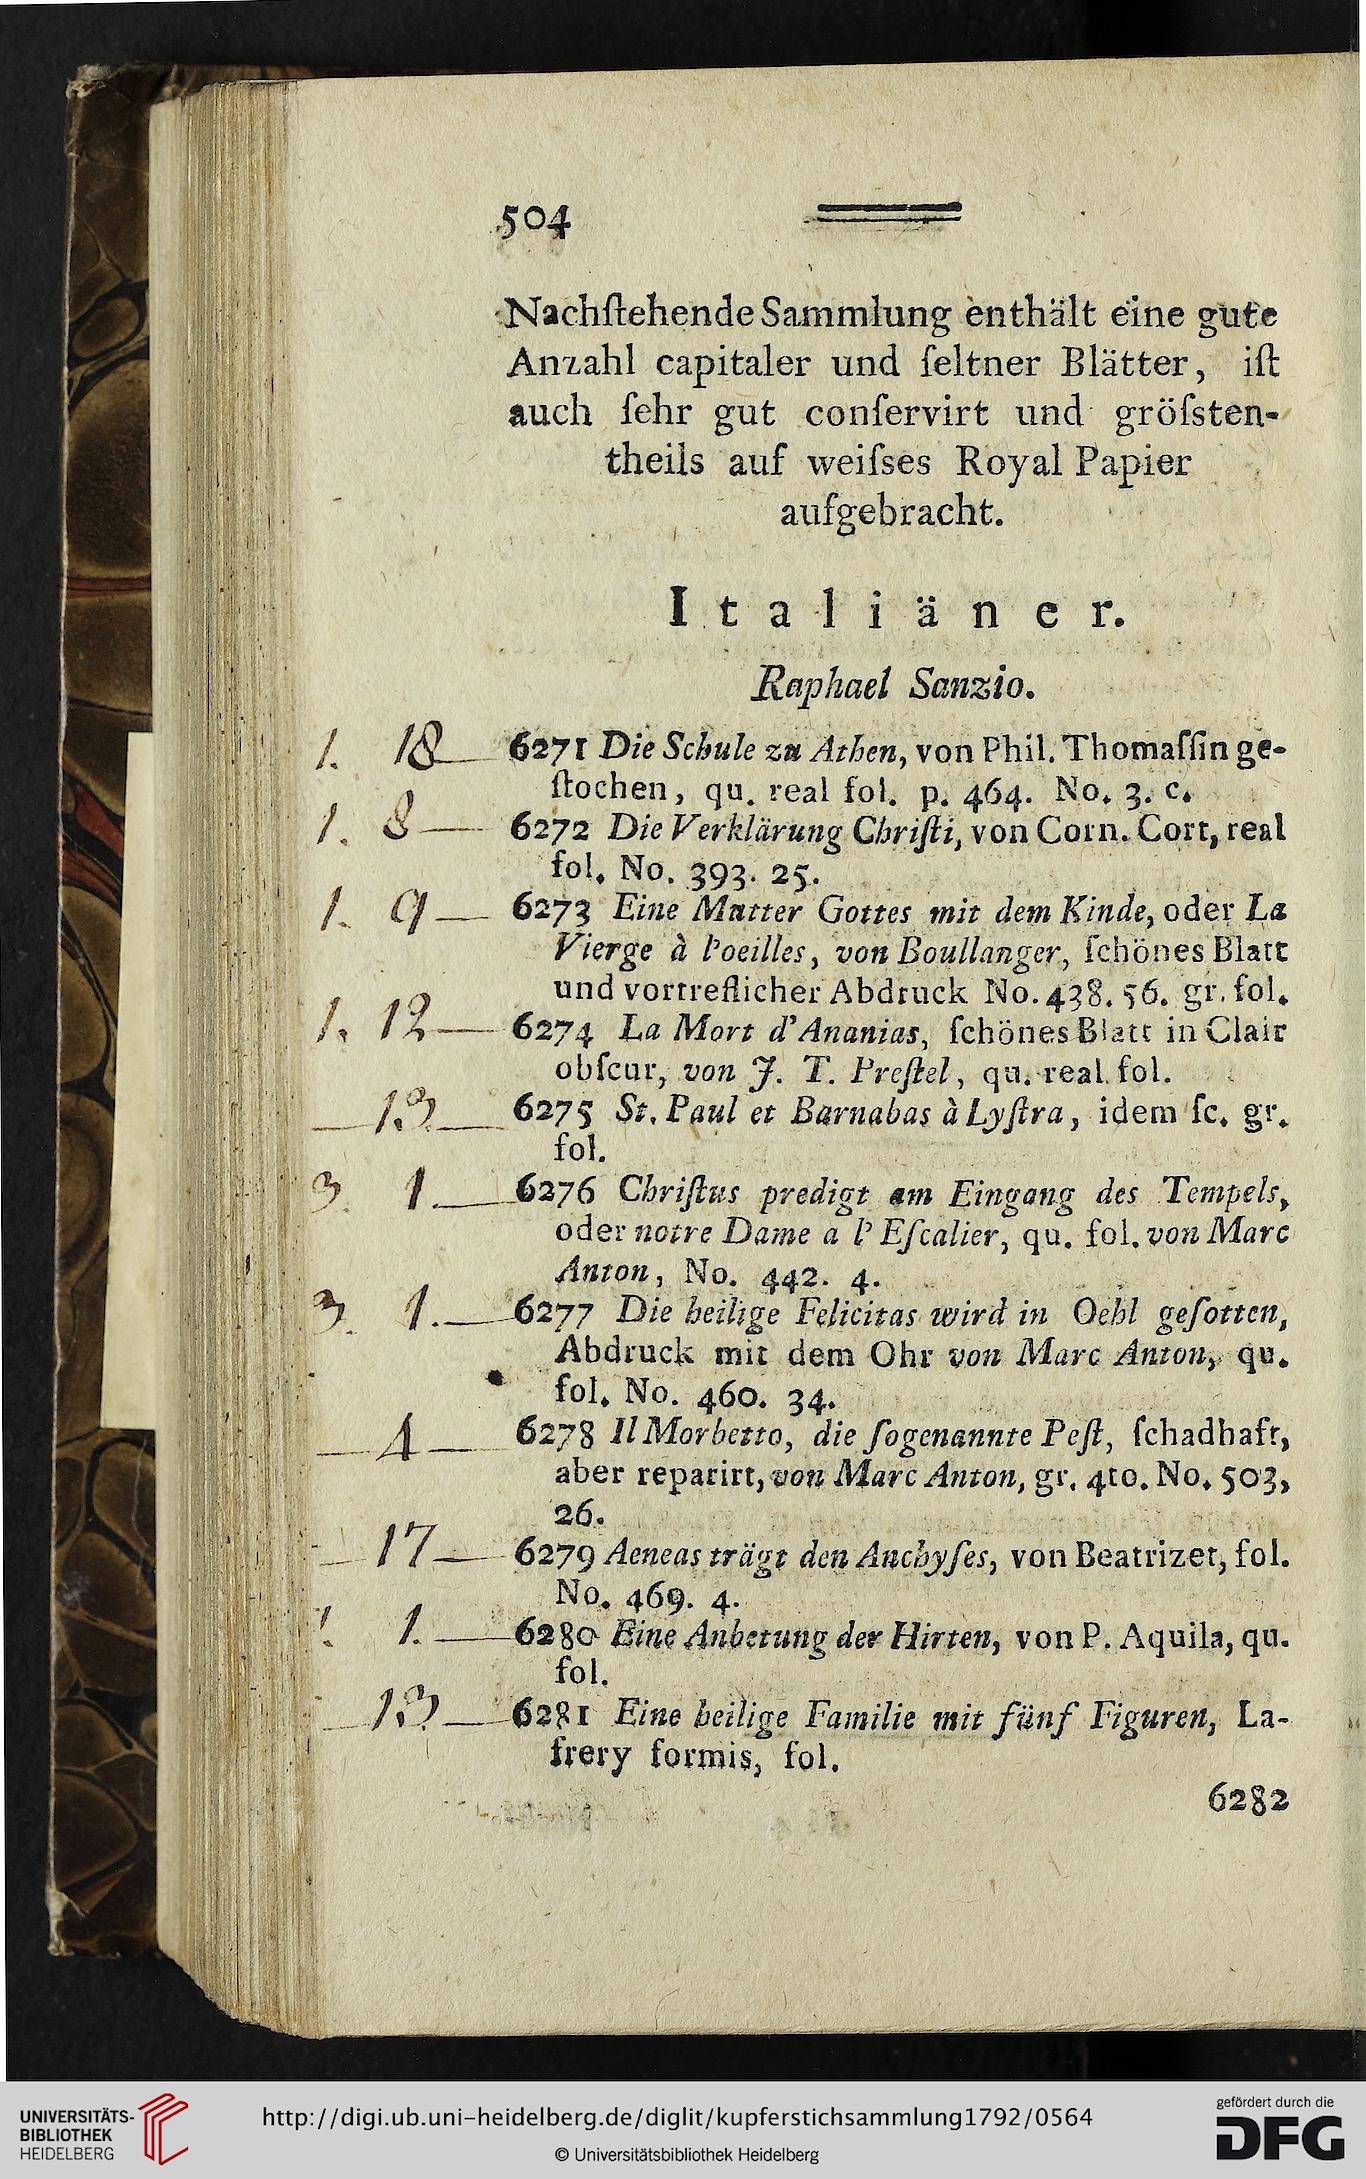 504
Nachſtehende Sammlung enthält eine gute
Anzahl capitaler und ſeltner Blätter, iſt
auch ſehr gut conſervirt und gröſsten-
theils auf weiſses Royal Papier
aufgebracht.
Italiäner.
Raphael Sanzio.
1. 18 — 6271 Die Schule zu Athen, von Phil. Thomaſſin ge-
ſtochen, qu. real fol. p. 464. No. 3. c.
1. 8 — 6272 Die Verklärung Chriſti, von Corn. Cort, real
fol. No. 393. 25.
1. 9 — 6273 Eine Mutter Gottes mit dem Kinde, oder La
Vierge à l'oeilles, von Boullanger, ſchönes Blatt
und vortreflicher Abdruck No. 438. 56. gr. fol.
1. 12 — 6274 La Mort d'Ananias, ſchönes Blatt in Clair
obſcur, von J. T. Preſtel, qu. real fol.
— 13 — 6275 St. Paul et Barnabas à Lyſtra, idem ſc. gr.
fol.
3. 1. — 6276 Chriſtus predigt am Eingang des Tempels,
oder notre Dame a l'Eſcalier, qu. fol. von Marc
Anton, No. 442. 4.
3. 1. — 6277 Die heilige Felicitas wird in Oehl geſotten,
Abdruck mit dem Ohr von Marc Anton, qu.
fol. No. 460. 34.
— 4 — 6278 Il Morbetto, die ſogenannte Peſt, ſchadhaft,
aber reparirt, von Marc Anton, gr. 4to. No. 503,
26.
— 17 — 6279 Aeneas trägt den Anchyſes, von Beatrizet, fol.
No. 469. 4.
1. 1. — 6280 Eine Anbetung der Hirten, von P. Aquila, qu.
fol.
— 13 — 6281 Eine heilige Familie mit fünf Figuren, La-
frery formis, fol.
6282
UNIVERSITÄTS-
BIBLIOTHEK
HEIDELBERG
http://digi.ub.uni-heidelberg.de/diglit/kupferstichsammlung1792/0564
© Universitätsbibliothek Heidelberg
gefördert durch die
DFG